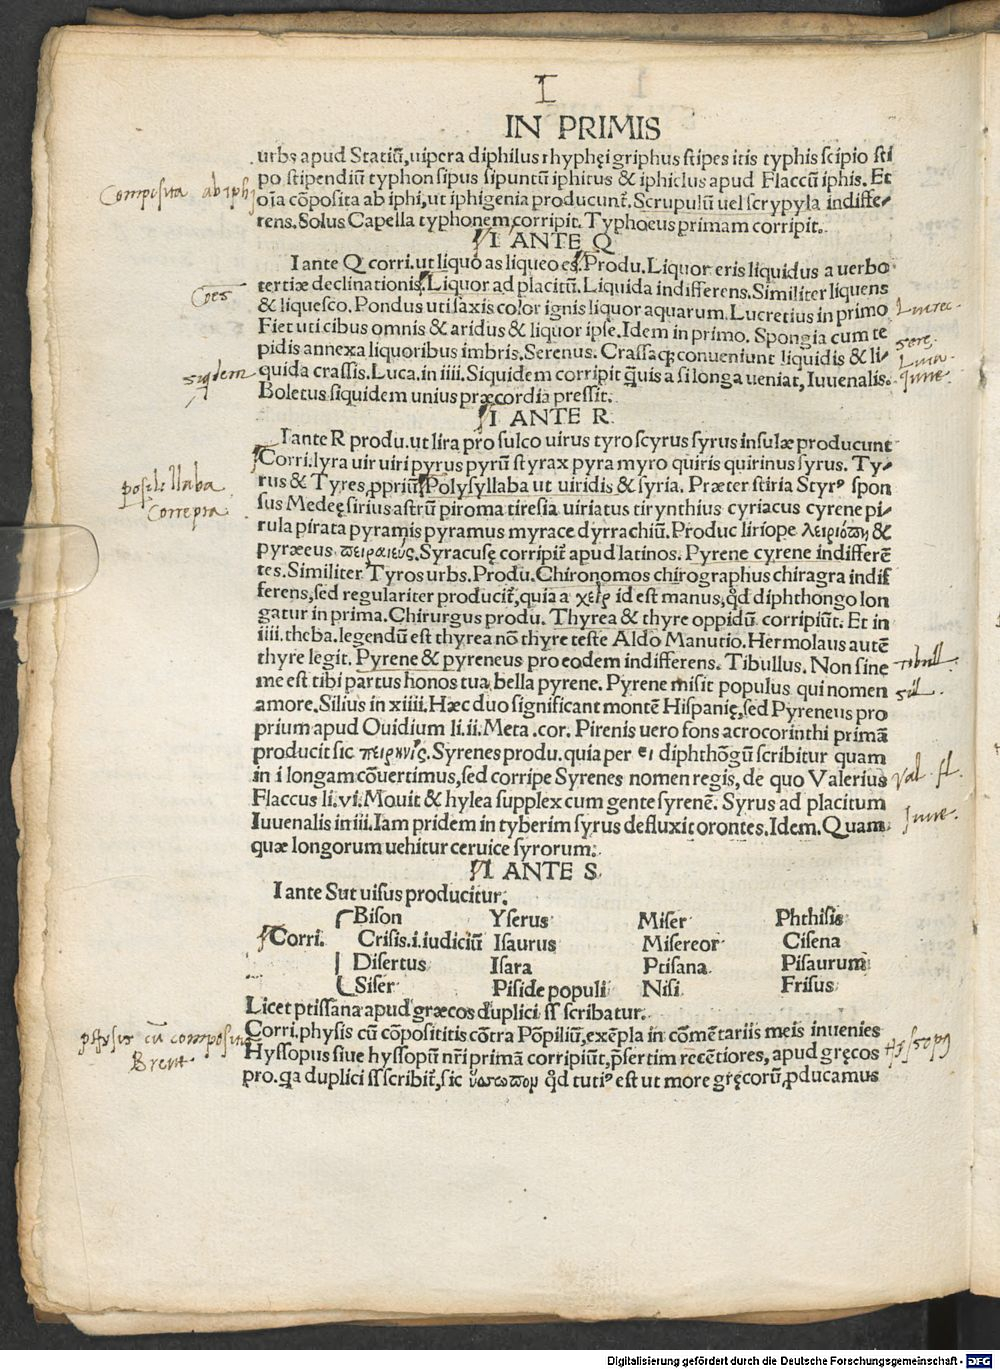 I
IN PRIMIS
urbs apud Statiū, uipera diphilus rhyphęi griphus stipes itis typhis scipio sti
Composita ab iphi
po stipendiū typhon sipus sipuntū iphitus & iphiclus apud Flaccū iphis. Et
oīa cōposita ab iphi, ut iphigenia producunt̄. Scrupulū uel scrypyla indiffe⸗
rens. Solus Capella typhonem corripit. Typhoeus primam corripit.
I ANTE Q
I ante Q corri. ut liquo as liqueo es. Produ. Liquor eris liquidus a uerbo
tertiæ declinationis. Liquor ad placitū. Liquida indifferens. Similiter liquens
& liquesco. Pondus uti saxis color ignis liquor aquarum. Lucretius in primo
Lucrec.
Fiet uti cibus omnis & aridus & liquor ipse. Idem in primo. Spongia cum te
sere.
pidis annexa liquoribus imbris. Serenus. Crassaqȝ conueniunt liquidis & li⸗
Luca.
siqdem
quida crassis. Luca. in iiii. Siquidem corripit q̄uis a si longa ueniat, Iuuenalis.
Juue.
Boletus siquidem unius præcordia pressit.
I ANTE R
I ante R produ. ut lira pro sulco uirus tyro scyrus syrus insulæ producunt
Corri. lyra uir uiri pyrus pyrū styrax pyra myro quiris quirinus syrus. Ty⸗
polysillaba
Correpta
rus & Tyres, ꝓpriū. Polysyllaba ut uiridis & syria. Præter stiria Styrꝰ spon
sus Medeę sirius astrū piroma tiresia uiriatus tirynthius cyriacus cyrene pi⸗
rula pirata pyramis pyramus myrace dyrrachiū. Produc liriope λειριόπη &
pyræeus πειραιεύς. Syracusę corripit̄ apud latinos. Pyrene cyrene indifferē
tes. Similiter Tyros urbs. Produ. Chironomos chirographus chiragra indif
ferens, sed regulariter producit̄, quia a χεὶρ id est manus, qđ diphthongo lon
gatur in prima. Chirurgus produ. Thyrea & thyre oppidū corripiūt. Et in
iiii. theba. legendū est thyrea nō thyre teste Aldo Manutio. Hermolaus autē
thyre legit. Pyrene & pyreneus pro eodem indifferens. Tibullus. Non sine
tibull
me est tibi partus honos tua bella pyrene. Pyrene misit populus qui nomen
sil.
amore. Silius in xiiii. Hæc duo significant montē Hispanię, sed Pyreneus pro
prium apud Ouidium li. ii. Meta. cor. Pirenis uero fons acrocorinthi primā
producit sic πειρηνίς. Syrenes produ. quia per ει diphthōgū scribitur quam
in i longam cōuertimus, sed corripe Syrenes nomen regis, de quo Valerius
Val. fl.
Flaccus li. vi. Mouit & hylea supplex cum gente syrenē. Syrus ad placitum
Iuuenalis in iii. Iam pridem in tyberim syrus defluxit orontes. Idem. Quam
Juue.
quæ longorum uehitur ceruice syrorum.
I ANTE S
I ante S ut uisus producitur.
Bison Yserus Miser Phthisis
Corri. Crisis .i. iudiciū Isaurus Misereor Cisena
Disertus Isara Ptisana Pisaurum
Siser Piside populi Nisi Frisus
Licet ptissana apud græcos duplici ss scribatur.
Corri. physis cū cōposititis cōtra Pōpiliū, exēpla in cōmētariis meis inuenies
physis cū composit
Breut
Hyssopus siue hyssopū nr̄i primā corripiūt, p̄sertim recētiores, apud gręcos
Hyssopꝰ
pro. qa duplici ss scribit̄, sic ὕσσωπον qđ tutiꝰ est ut more gręcorū, ꝓducamus
Digitalisierung gefördert durch die Deutsche Forschungsgemeinschaft - DFG